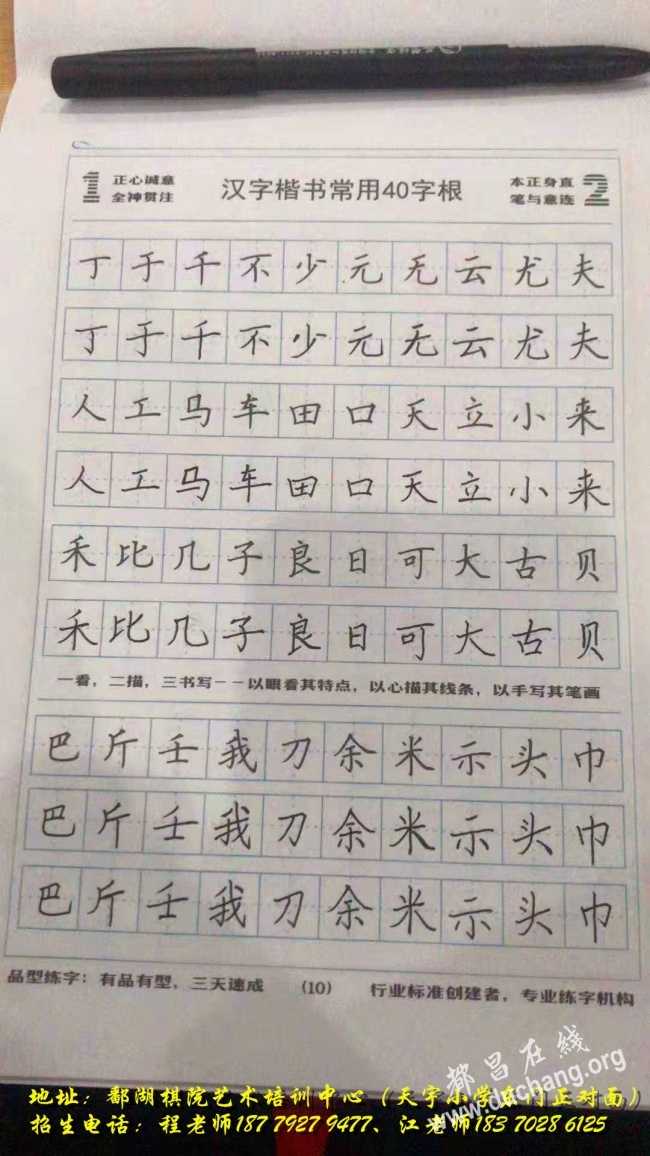 1 正心诚意 汉字楷书常用40字根 本正身直 2
全神贯注 笔与意连
丁于千不少元无云尤夫
丁于千不少元无云尤夫
人工马车田口天立小来
人工马车田口天立小来
禾比几子良日可大古贝
禾比几子良日可大古贝
一看，二描，三书写——以眼看其特点，以心描其线条，以手写其笔画
巴斤壬我刀余米示头巾
巴斤壬我刀余米示头巾
巴斤壬我刀余米示头巾
品型练字：有品有型，三天速成 （10） 行业标准创建者，专业练字机构
都昌在线
www.duchang.org
地址：鄱湖棋院艺术培训中心（天宇小学东门正对面）
招生电话：程老师187 7927 9477、江老师183 7028 6125